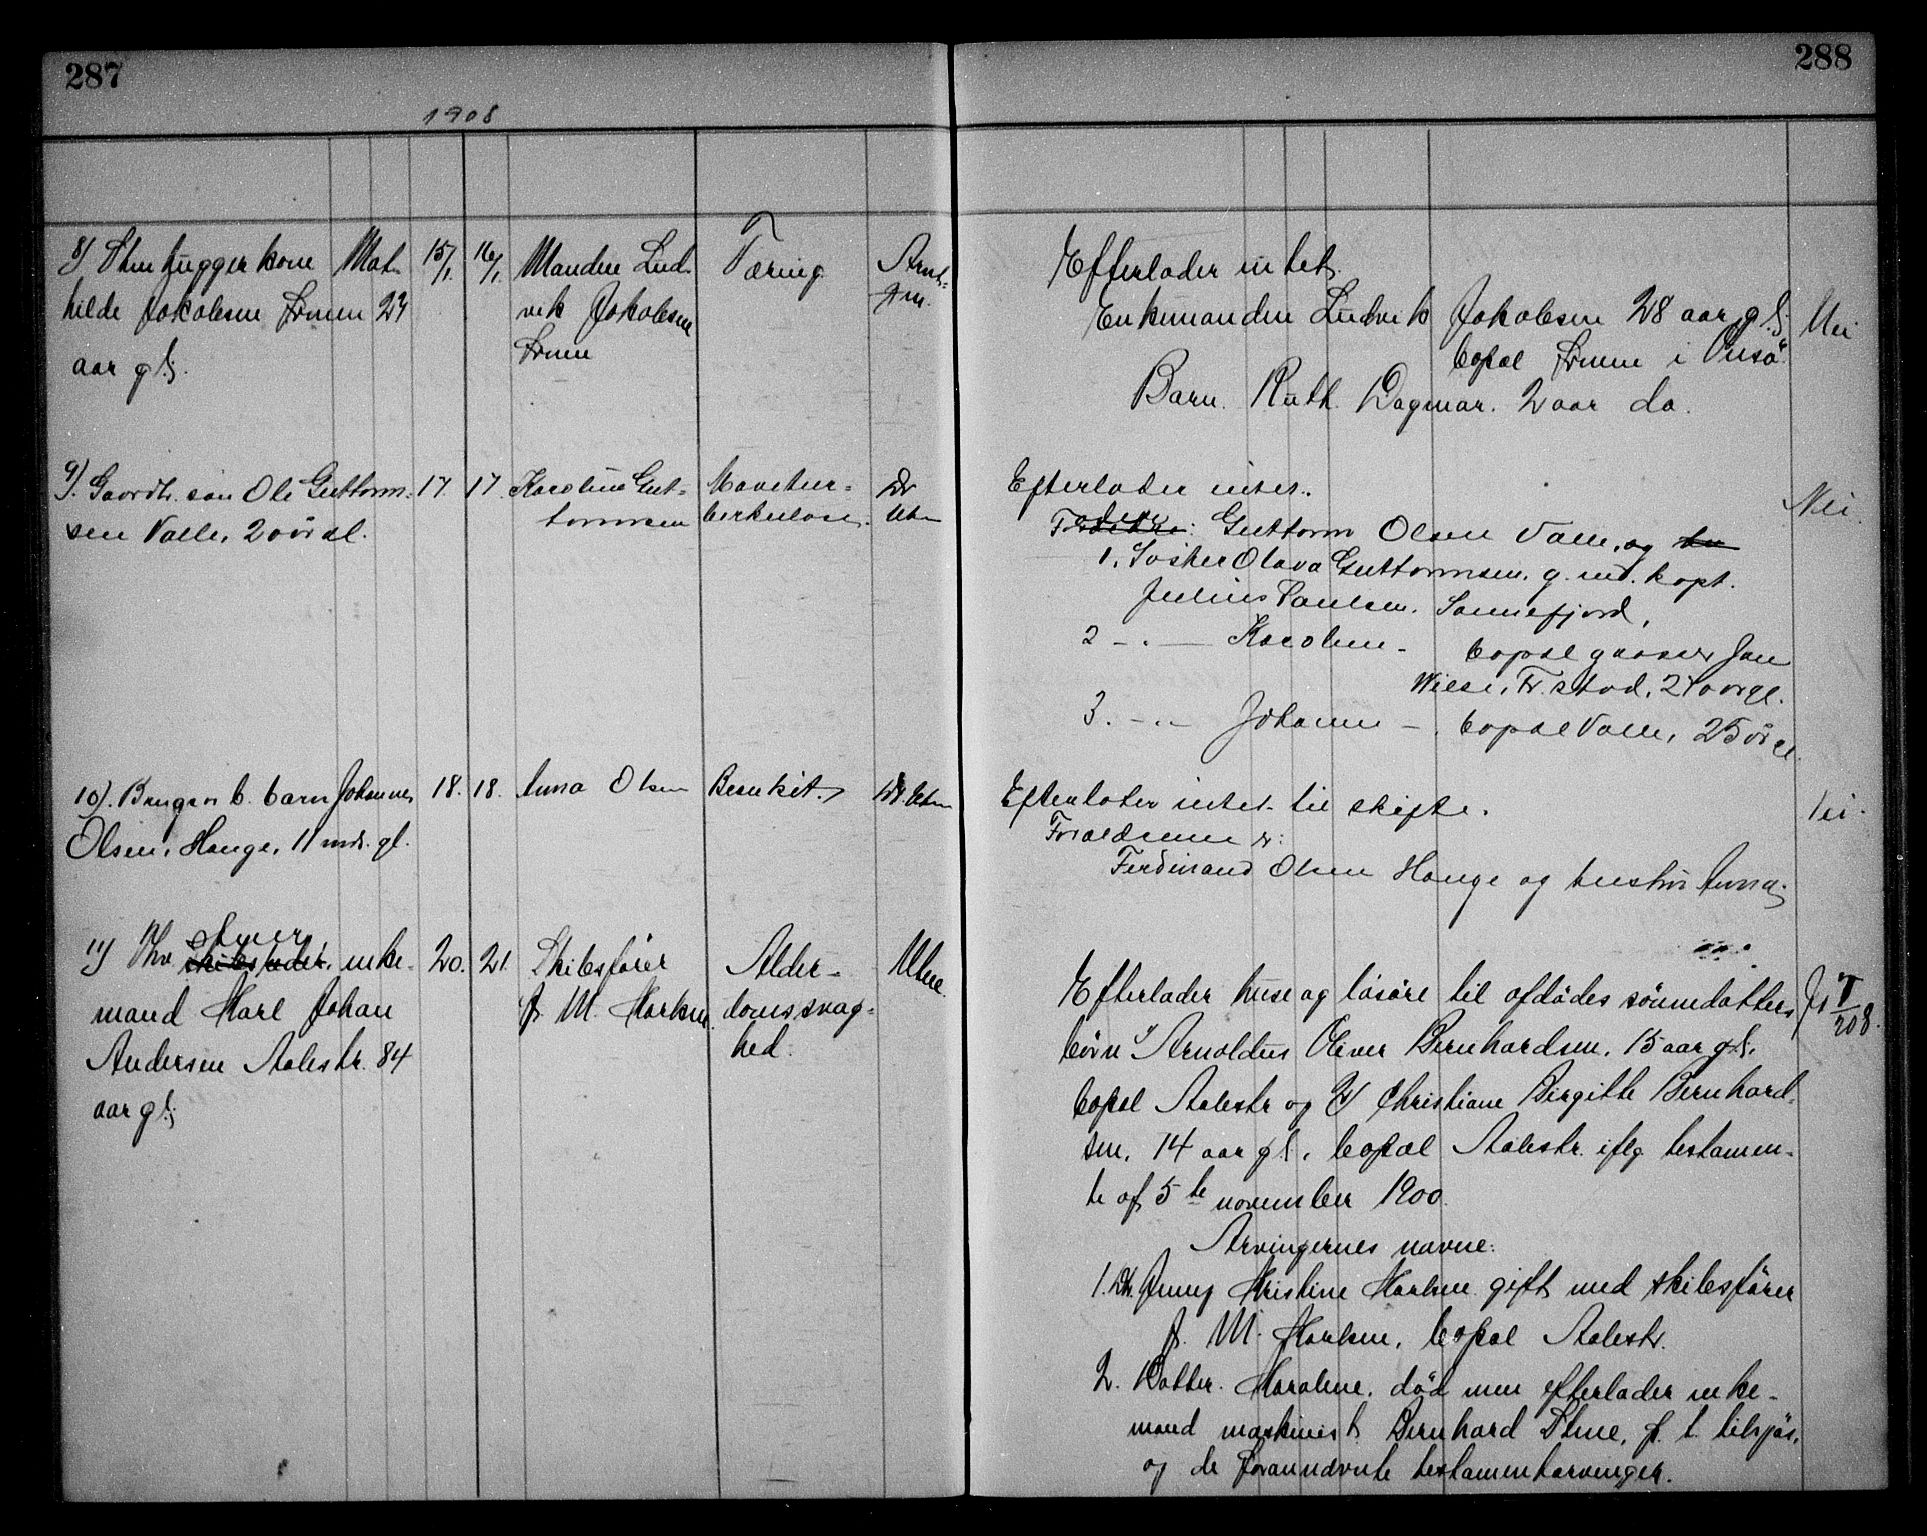 287
1908
8) Stenhuggerkone Mat-
hilde Jakobsen 24
aar gl.
15/1
16/1
Manden Lud-
vik Jakobsen
Tæring
9). Gaardb. søn Ole Guttorm-
sen Valle, 20 år gl.
17.
17.
Karoline Gut-
tormsen
Mavetuber-
kulose.
Dr
Utne
10). Brugers b. barn Johannes
Olsen, Hauge, 11 mdr. gl.
18.
18.
Anna Olsen
Bronkit.
Dr. Utne
11) Fhv. enke-
mand Karl Johan
Andersen Aalestr. 84
aar gl.
20.
21.
Skibsfører
J. M. Karlsen.
Alder-
domssvag-
hed.
Utne.
288
Efterlader intet.
Enkemanden Ludvik Jakobsen 28 aar gl.
bopæl i Onsö
Barn. Ruth Dagmar. 2 aar do.
Nei
Efterlader intet.
Guttorm Olsen Valle, og
1. Søster Olava Guttormsen. g. md. kapt.
Julius Paulsen. Sannefjord,
2 -.- Karoline - bopæl gaasver Jan
Wiese, Fr.stad, 24 år gl.
3. -..- Johanne -. bopæl Valle, 25 år gl.
Nei
Efterlader intet til skifte.
Forældrene er:
Ferdinand Olsen Hauge og hustru Anna.
Nei.
Efterlader huse og løsøre til afdødes sønnedatters
børn 1) Arnoldus Oliver Bernhardsen, 15 aar gl.
bopæl Aalestr og 2) Christiane Birgitte Bernhard-
sen, 14 aar gl. bopæl Aalestr. iflg testamen-
te af 5te november 1900.
Arvingernes navne:
1. Dtr. Jenny Kristine Karlsen gift med skibsfører
J. M. Karlsen, bopæl Aalestr.
2. Datter. Karoline, död men efterlader enke-
mand maskinist Bernhard Stene, f. t. tilsjös,
og de forannævnte testamentarvinger.